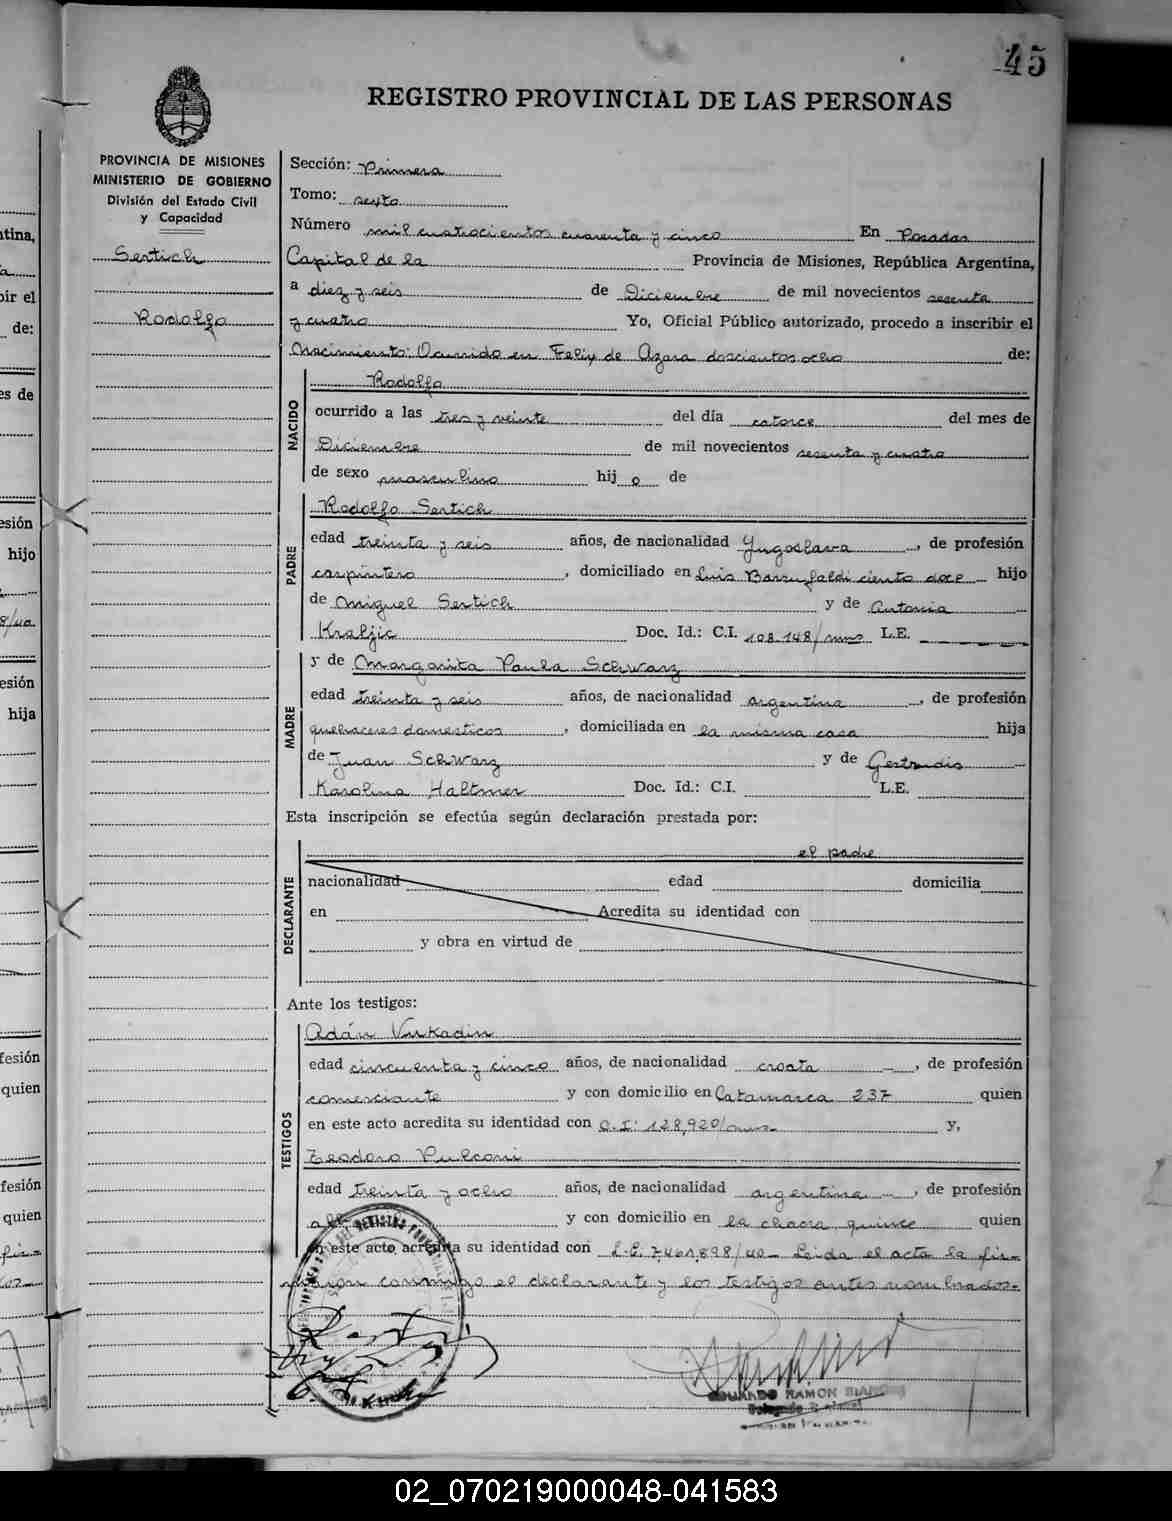 45
REGISTRO PROVINCIAL DE LAS PERSONAS
PROVINCIA DE MISIONES
MINISTERIO DE GOBIERNO
División del Estado Civil
y Capacidad
Sertich
Rodolfo
Sección: Primera
Tomo: sexto
Número mil cuatrocientos cuarenta y cinco En Posadas
Capital de la Provincia de Misiones, República Argentina,
a diez y seis de Diciembre de mil novecientos sesenta
y cuatro Yo, Oficial Público autorizado, procedo a inscribir el
Nacimiento: Ocurrido en Felix de Azara doscientos ocho de:
NACIDO
Rodolfo
ocurrido a las tres y veinte del día catorce del mes de
Diciembre de mil novecientos sesenta y cuatro
de sexo masculino hij o de
PADRE
Rodolfo Sertich
edad treinta y seis años, de nacionalidad Yugoslava, de profesión
carpintero, domiciliado en Luis Barrufaldi ciento doce hijo
de Miguel Sertich y de Antonia
Kraljic Doc. Id.: C.I. 108.148/mnes L.E.
MADRE
y de Margarita Paula Schwarz
edad treinta y seis años, de nacionalidad argentina, de profesión
quehaceres domesticos, domiciliada en la misma casa hija
de Juan Schwarz y de Gertrudis
Karolina Haltmer Doc. Id.: C.I. L.E.
Esta inscripción se efectúa según declaración prestada por:
DECLARANTE
el padre
nacionalidad edad domicilia
en Acredita su identidad con
y obra en virtud de
Ante los testigos:
TESTIGOS
Adán Vukadin
edad cincuenta y cinco años, de nacionalidad croata, de profesión
comerciante y con domicilio en Catamarca 237 quien
en este acto acredita su identidad con C.I: 128,920/mns y,
Teodoro Pulconi
edad treinta y ocho años, de nacionalidad argentina, de profesión
y con domicilio en la chacra quince quien
en este acto acredita su identidad con L.E. 7.461,898/40- Leida el acta la fir-
maron conmigo el declarante y los testigos antes nombrados.-
EDUARDO RAMON
02_070219000048-041583